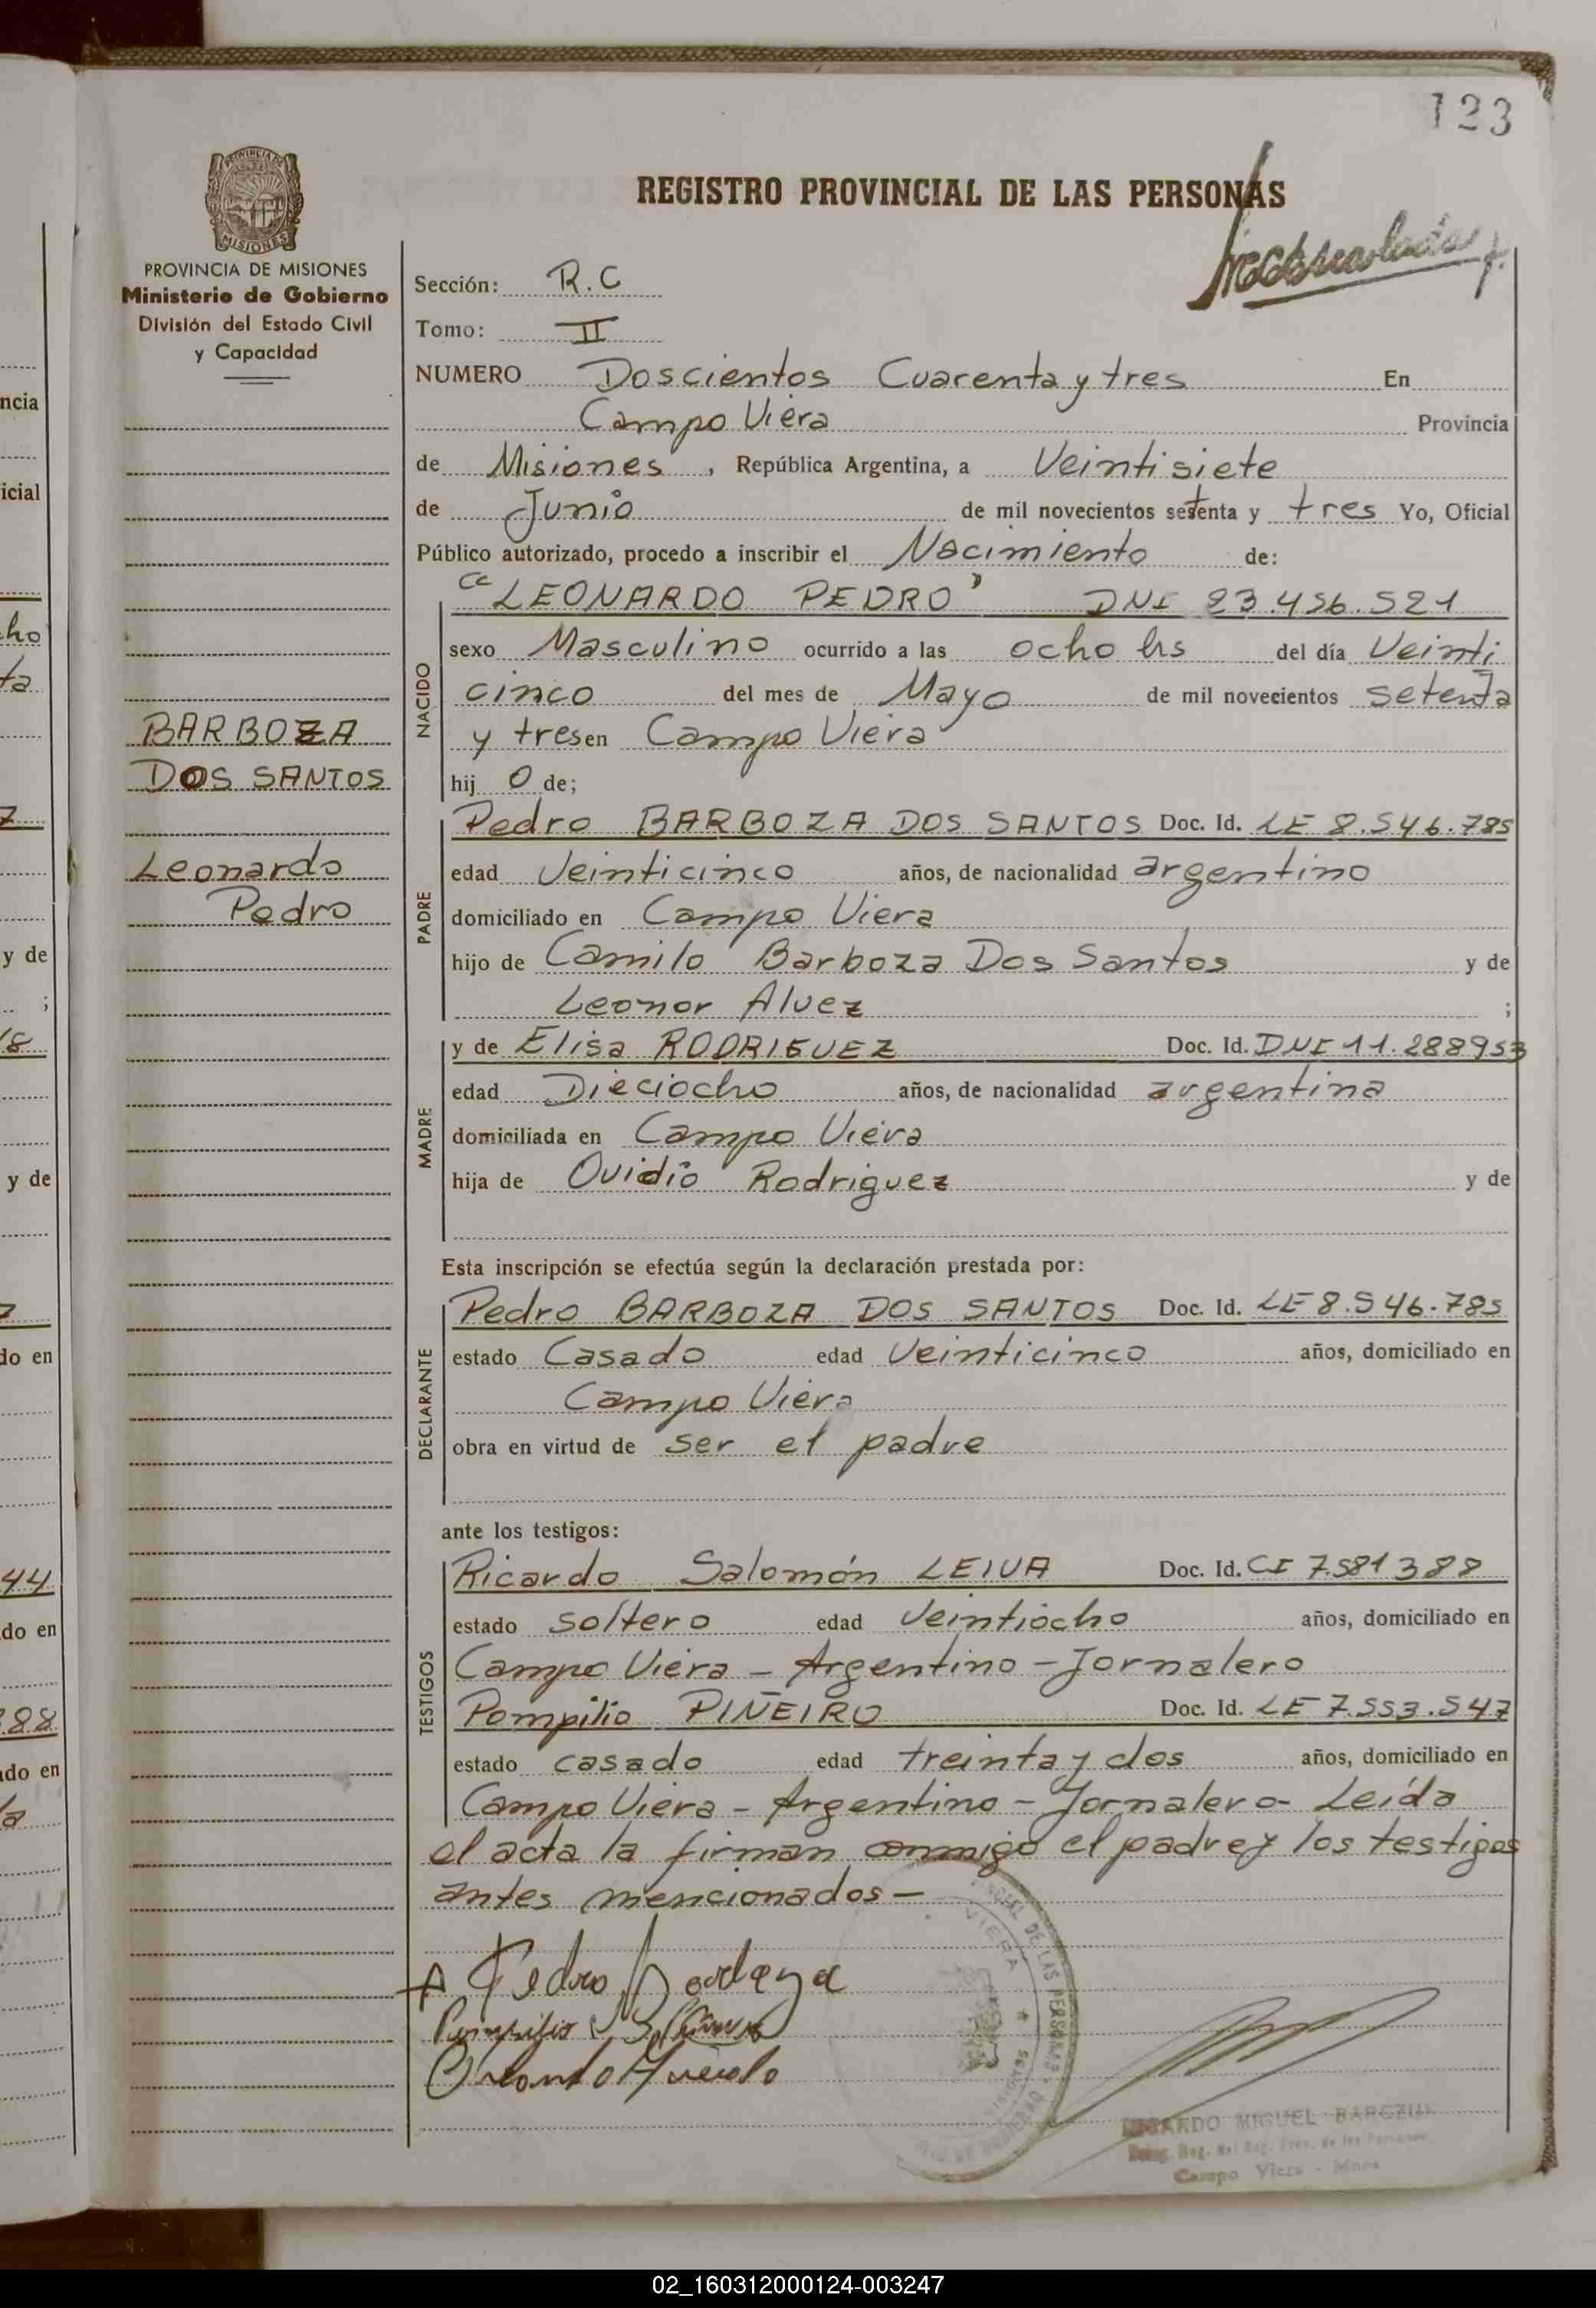 123
REGISTRO PROVINCIAL DE LAS PERSONAS
PROVINCIA DE MISIONES
Ministerio de Gobierno
División del Estado Civil
y Capacidad
Sección: R.C
Tomo: II
NUMERO Doscientos Cuarenta y tres En
Campo Viera Provincia
de Misiones, República Argentina, a Veintisiete
de Junio de mil novecientos setenta y tres Yo, Oficial
Público autorizado, procedo a inscribir el Nacimiento de:
"LEONARDO PEDRO" DNI 23.456.521
NACIDO
sexo Masculino ocurrido a las ocho hs del día Veinti
cinco del mes de Mayo de mil novecientos setenta
y tres en Campo Viera
hijo de;
BARBOZA
DOS SANTOS
Leonardo
Pedro
PADRE
Pedro BARBOZA DOS SANTOS Doc. Id. LE 8.546.785
edad Veinticinco años, de nacionalidad argentino
domiciliado en Campo Viera
hijo de Camilo Barboza Dos Santos y de
Leonor Alvez ;
MADRE
y de Elisa RODRIGUEZ Doc. Id. DNI 11.288953
edad Dieciocho años, de nacionalidad argentina
domiciliada en Campo Viera
hija de Ovidio Rodriguez y de
Esta inscripción se efectúa según la declaración prestada por:
DECLARANTE
Pedro BARBOZA DOS SANTOS Doc. Id. LE 8.546.785
estado Casado edad Veinticinco años, domiciliado en
Campo Viera
obra en virtud de ser el padre
ante los testigos:
TESTIGOS
Ricardo Salomón LEIVA Doc. Id. CI 7.581388
estado soltero edad Veintiocho años, domiciliado en
Campo Viera - Argentino - Jornalero
Pompilio PIÑEIRO Doc. Id. LE 7.553.547
estado casado edad treinta y dos años, domiciliado en
Campo Viera - Argentino - Jornalero - Leída
el acta la firman conmigo el padre y los testigos
antes mencionados -
Pedro
MIGUEL
Campo Viera - Mnes
02_160312000124-003247